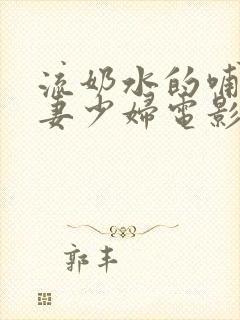 流奶水的哺
妻少婦電影
郭丰